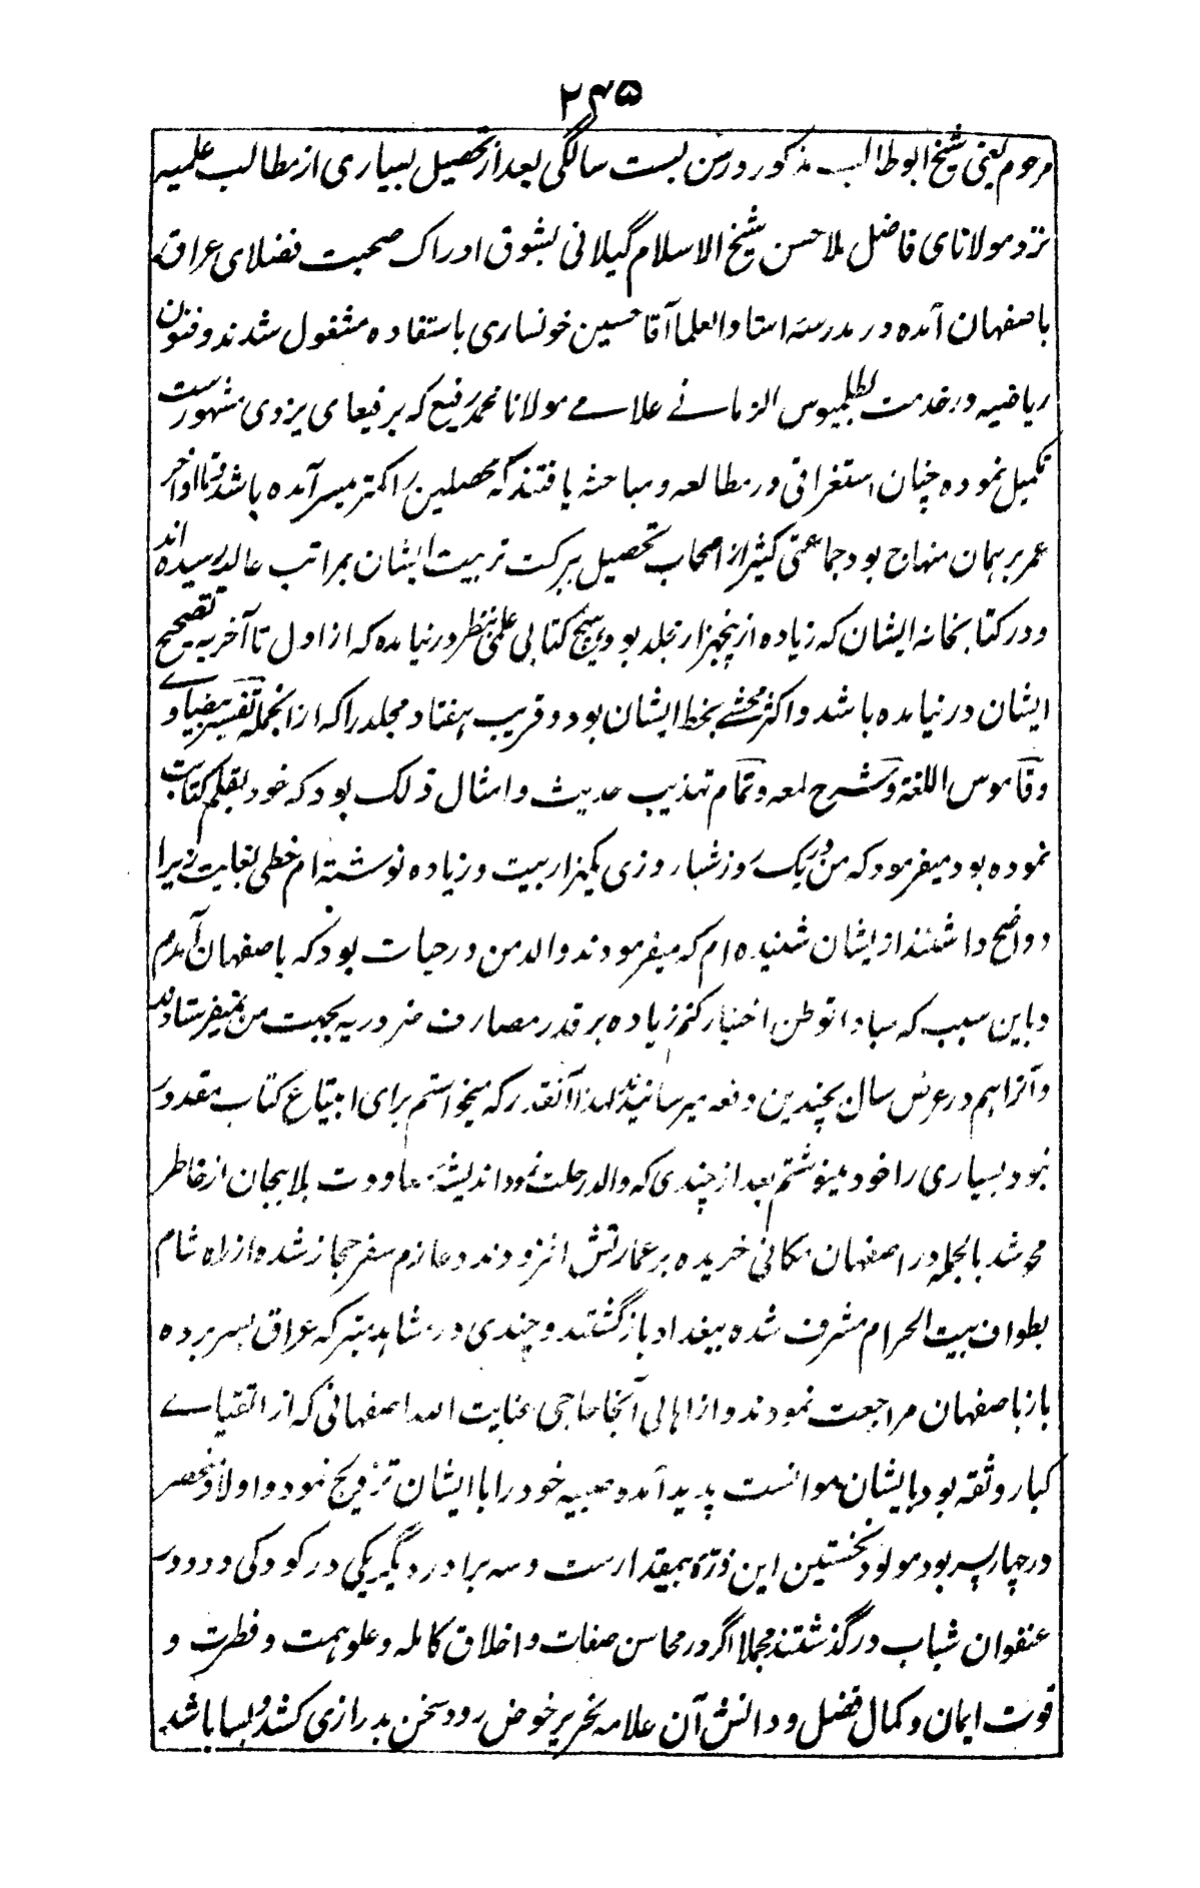 ۲۶۵
مرحوم یعنی شیخ ابوطالب مذکور در سن بست سالگی بعد از تحصیل بسیاری از مطالب علمیه
نزد مولانای فاضل ملا حسن شیخ الاسلام گیلانی بشوق ادراک صحبت فضلای عراق
باصفهان آمده در مدرسۀ استاد العلما آقا حسین خونساری باستفاده مشغول شدند و فنون
ریاضیه در خدمت بطلمیوس الزمانے علامے مولانا محمد رفیع که برفیعای یزدی مشهورست
تکمیل نموده چنان استغراقی در مطالعه و مباحثه یافتند که محصلین را کمتر میسر آمده باشد و تا اواخر
عمر بر همان منهاج بود جماعتی کثیر از اصحاب تحصیل ببرکت تربیت ایشان بمراتب عالیه رسیده اند
و در کتابخانه ایشان که زیاده از پنجهزار جلد بود هیچ کتابی علمی بنظر در نیامده که از اول تا آخر به تصحیح
ایشان در نیامده باشد و اکثر محشے بخط ایشان بود و قریب هفتاد مجلد را که از انجمله تفسیر بیضاوے
و قاموس اللغة و شرح لمعه و تمام تهذیب حدیث و امثال ذلک بود که خود بقلم کتابت
نموده بود میفرمود که من در یک روز شباروزی یکهزار بیت و زیاده نوشته ام خطی بغایت زیبا
و واضح داشتند از یشان شنیده ام که میفرمودند والد من در حیات بود که باصفهان آمدم
و باین سبب که مبادا توطن اختیار کنم زیاده بر قدر مصارف ضروریه بجهت من نمیفرستادند
و آنرا هم در عرض سال بچندین دفعه میرسانیدند لهذا آنقدر که میخواستم برای ابتیاع کتاب مقدور
نبود بسیاری را خود مینوشتم بعد از چندی که والد رحلت نمود اندیشۀ معاودت بلاهیجان از خاطر
محو شد بالجمله در اصفهان مکانی خریده بر عمارتش افزودند و عازم سفر حجاز شده از راه شام
بطواف بیت الحرام مشرف شده ببغداد بازگشتند و چندی در مشاهد متبرکه عراق بسر برده
باز باصفهان مراجعت نمودند و از اهالی آنجا حاجی عنایت الله اصفهانی که از اتقیاے
کبار و ثقه بود با ایشان موانست پدید آمد و صبیه خود را با ایشان تزویج نمود و اولاد منحصر
در چهار پسر بود مولود نخستین این ذرۀ بیمقدارست و سه برادر دیگر یکی در کودکی و دو در
عنفوان شباب درگذشتند مجملا اگر در محاسن صفات و اخلاق کامله و علو همت و فطرت و
قوت ایمان و کمال فضل و دانش آن علامه نحریر خوض رود سخن بدرازی کشد و بسا باشد